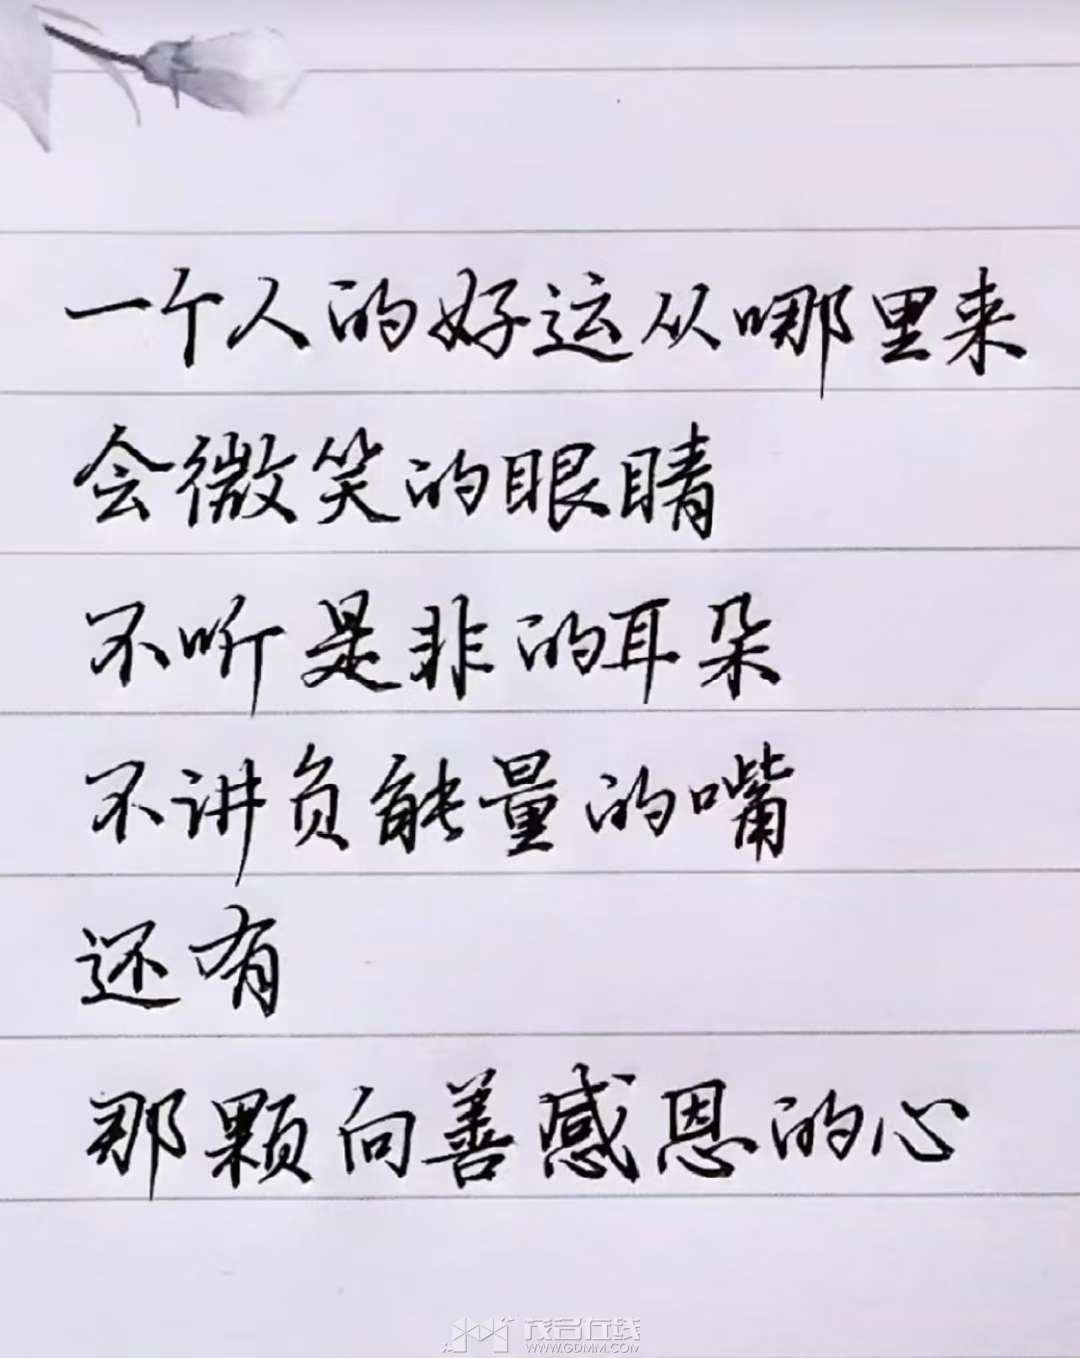 一个人的好运从哪里来
会微笑的眼睛
不听是非的耳朵
不讲负能量的嘴
还有
那颗向善感恩的心
茂名在线
WWW.GDMM.COM